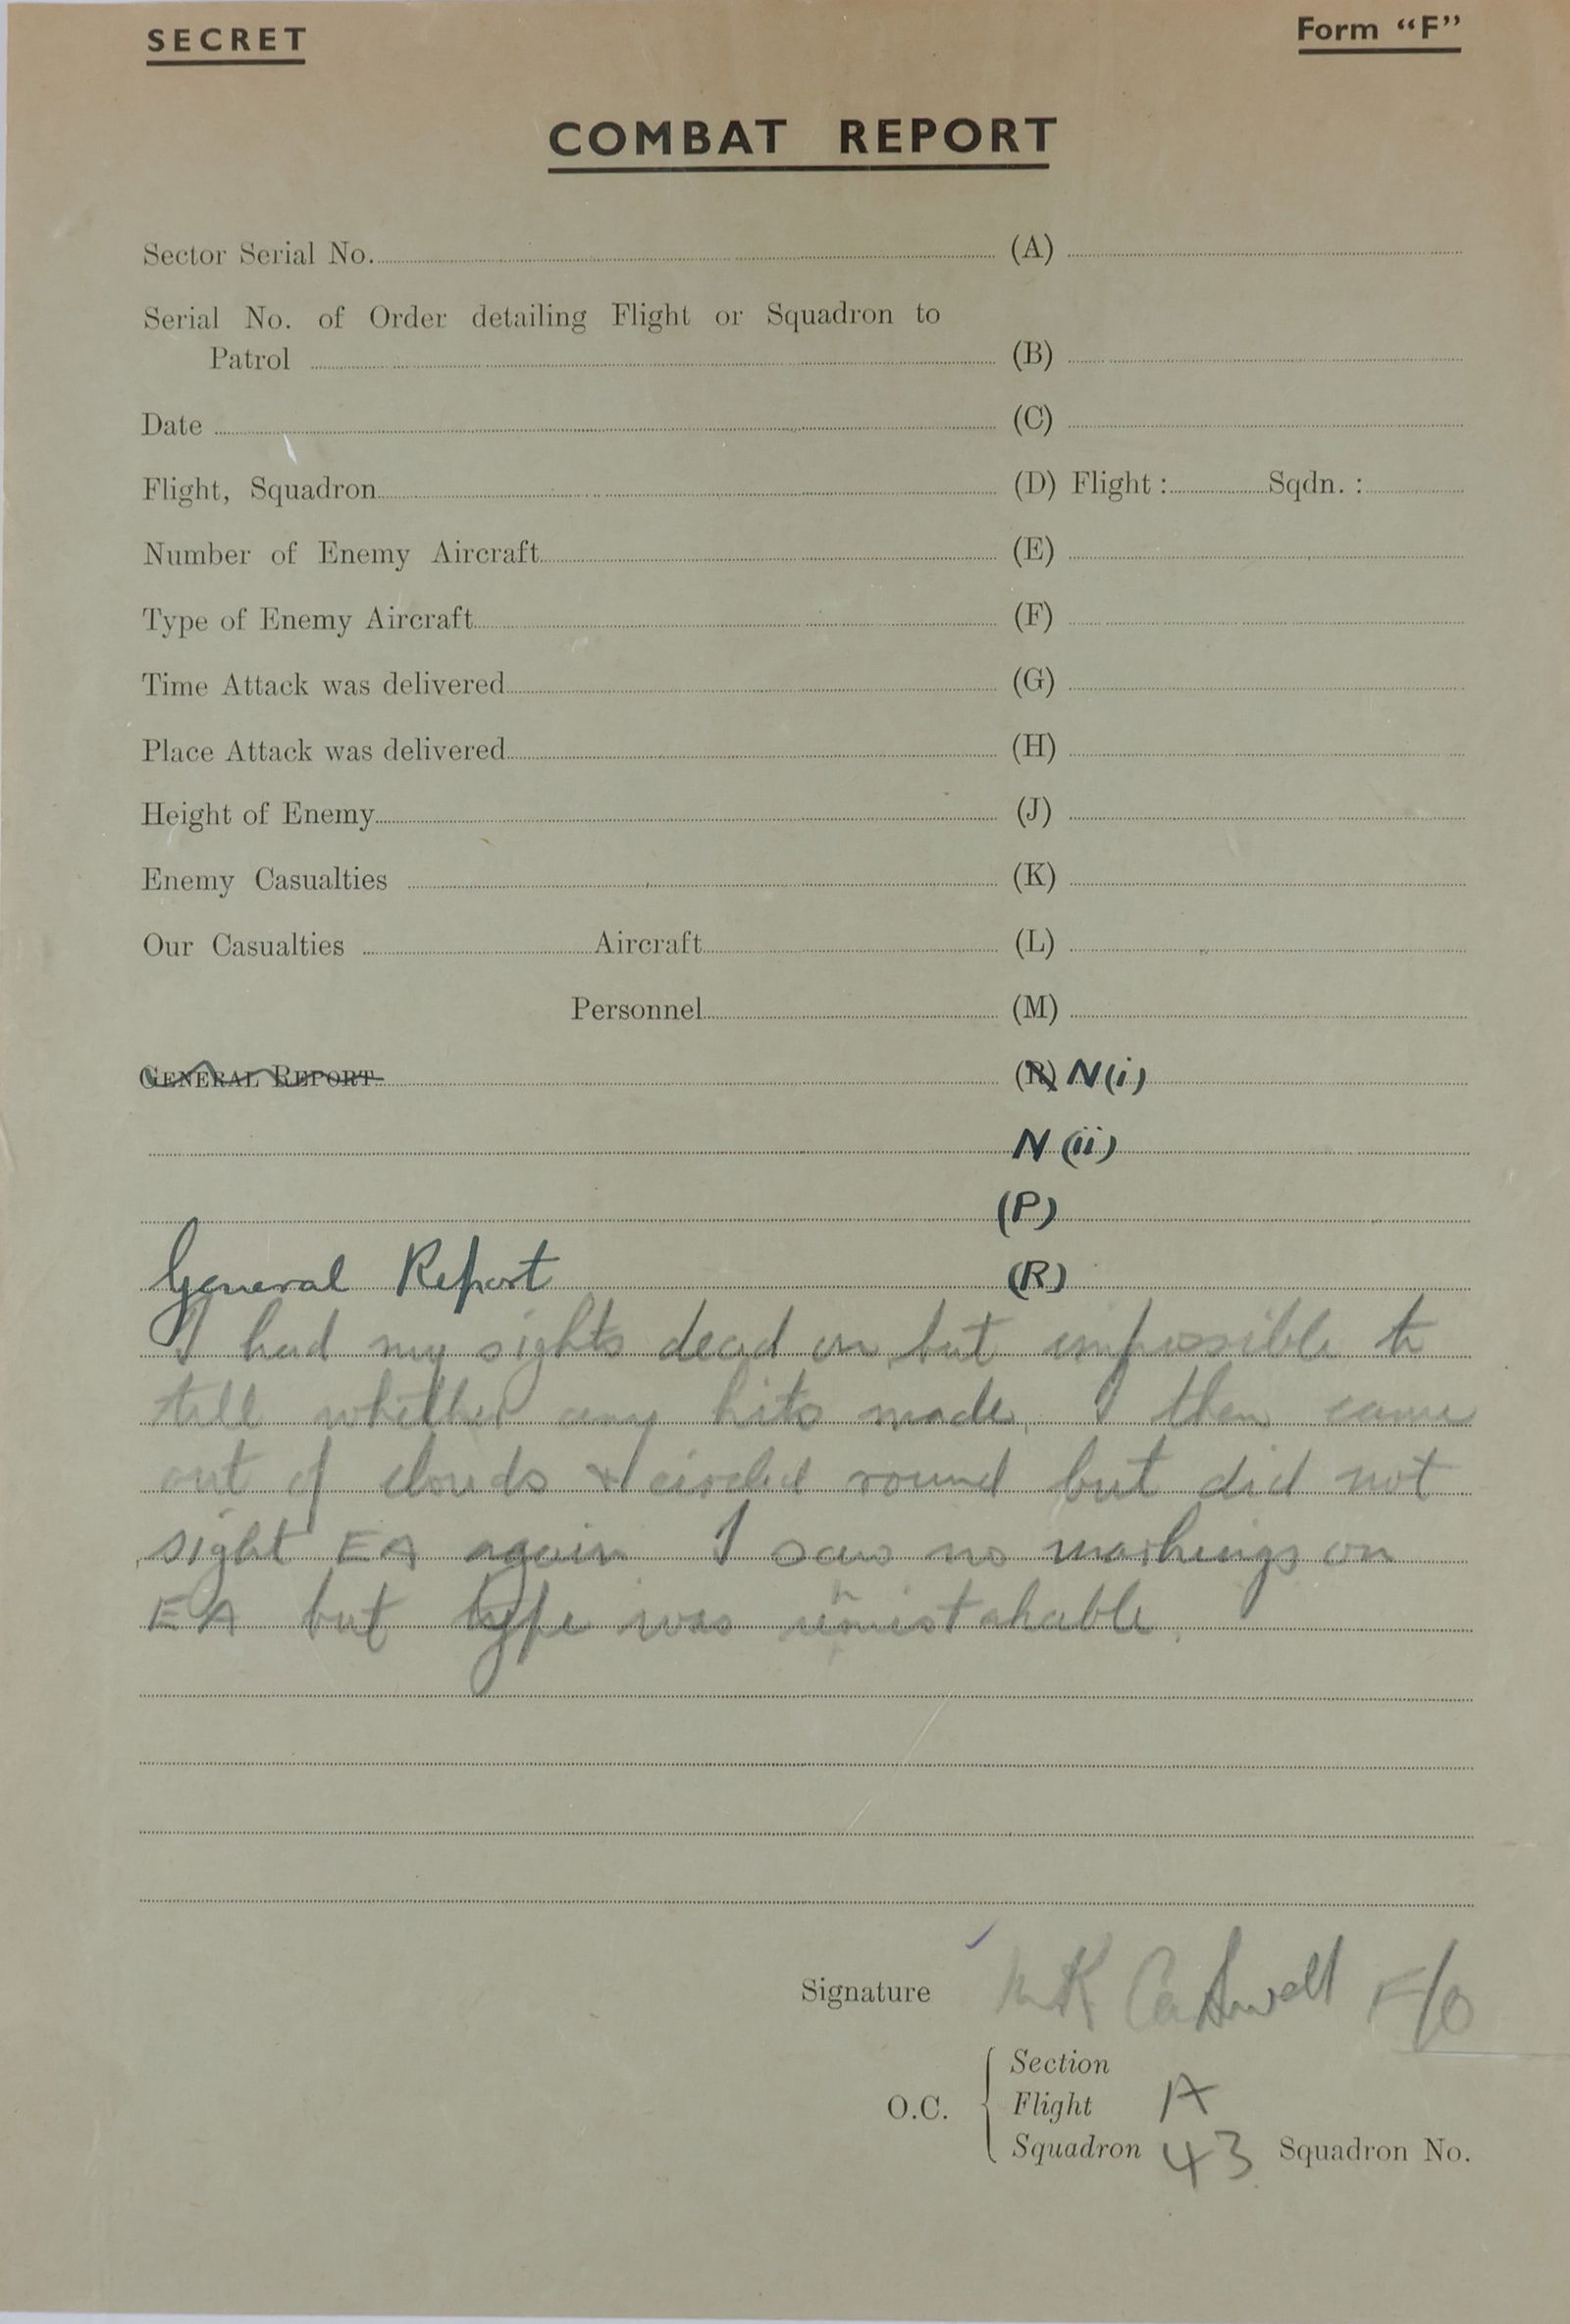 SECRET
Form “F”
COMBAT REPORT
Sector Serial No. (A)
Serial No. of Order detailing Flight or Squadron to
Patrol (B)
Date (C)
Flight, Squadron (D) Flight : Sqdn. :
Number of Enemy Aircraft (E)
Type of Enemy Aircraft (F)
Time Attack was delivered (G)
Place Attack was delivered (H)
Height of Enemy (J)
Enemy Casualties (K)
Our Casualties Aircraft (L)
Personnel (M)
GENERAL REPORT (R) N(i)
N (ii)
(P)
General Report (R)
I had my sights dead on but impossible to
tell whether any hits made. I then came
out of clouds & circled round but did not
sight EA again I saw no markings on
EA but type was unmistakable.
Signature F/O
Section
O.C. Flight A
Squadron 43 Squadron No.